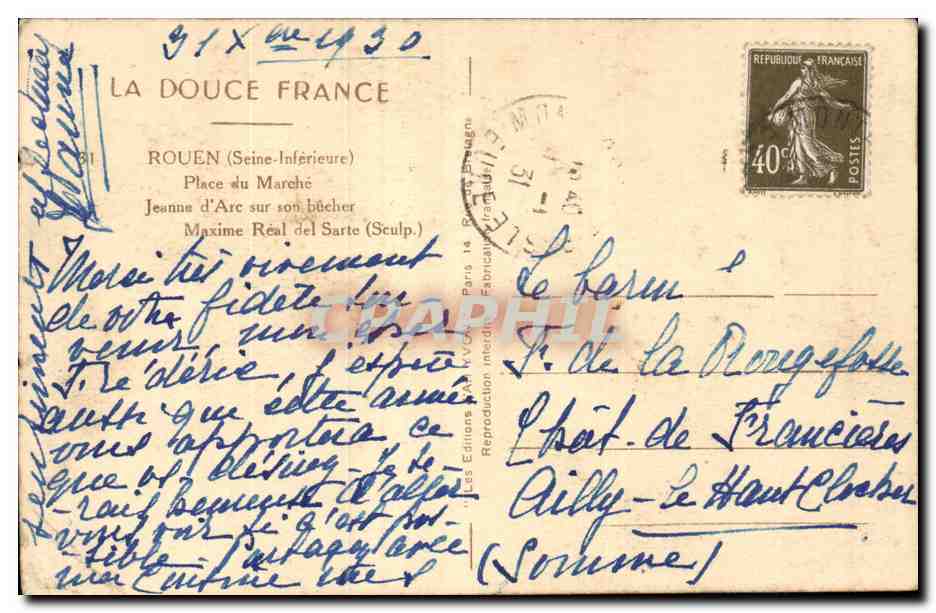 31 Xbre 1930
LA DOUCE FRANCE
31
ROUEN (Seine-Inférieure)
Place du Marché
Jeanne d'Arc sur son bûcher
Maxime Réal del Sarte (Sculp.)
Merci très vivement
de votre fidèle sou
venir, mon cher
Frédéric, j'espère
aussi que cette année
vous apportera ce
que vs désirez. Je se-
-rais heureuse d'aller
vous voir si c'est pos-
-sible. Partagez avec
ma Cousine mes
sentiments
"Les Editions d'Art YVON" Paris 14 Rue de Bretagne
Reproduction interdite Fabrication française
REPUBLIQUE FRANÇAISE
40c
POSTES
40
1-1
31
CPRAPHIL
Le baron
F. de la Rougefosse
Chât. de Francières
Ailly-le Haut Clocher
(Somme)